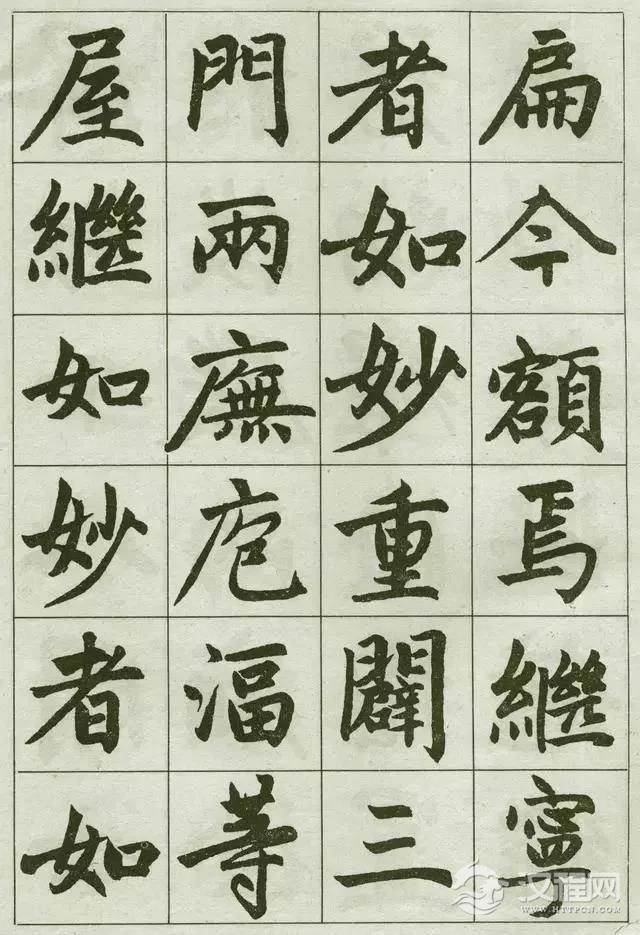 扁今額焉繼寧
者如妙重闢三
門兩廡庖湢等
屋繼如妙者如
汉程网
WWW.HTTPCN.COM